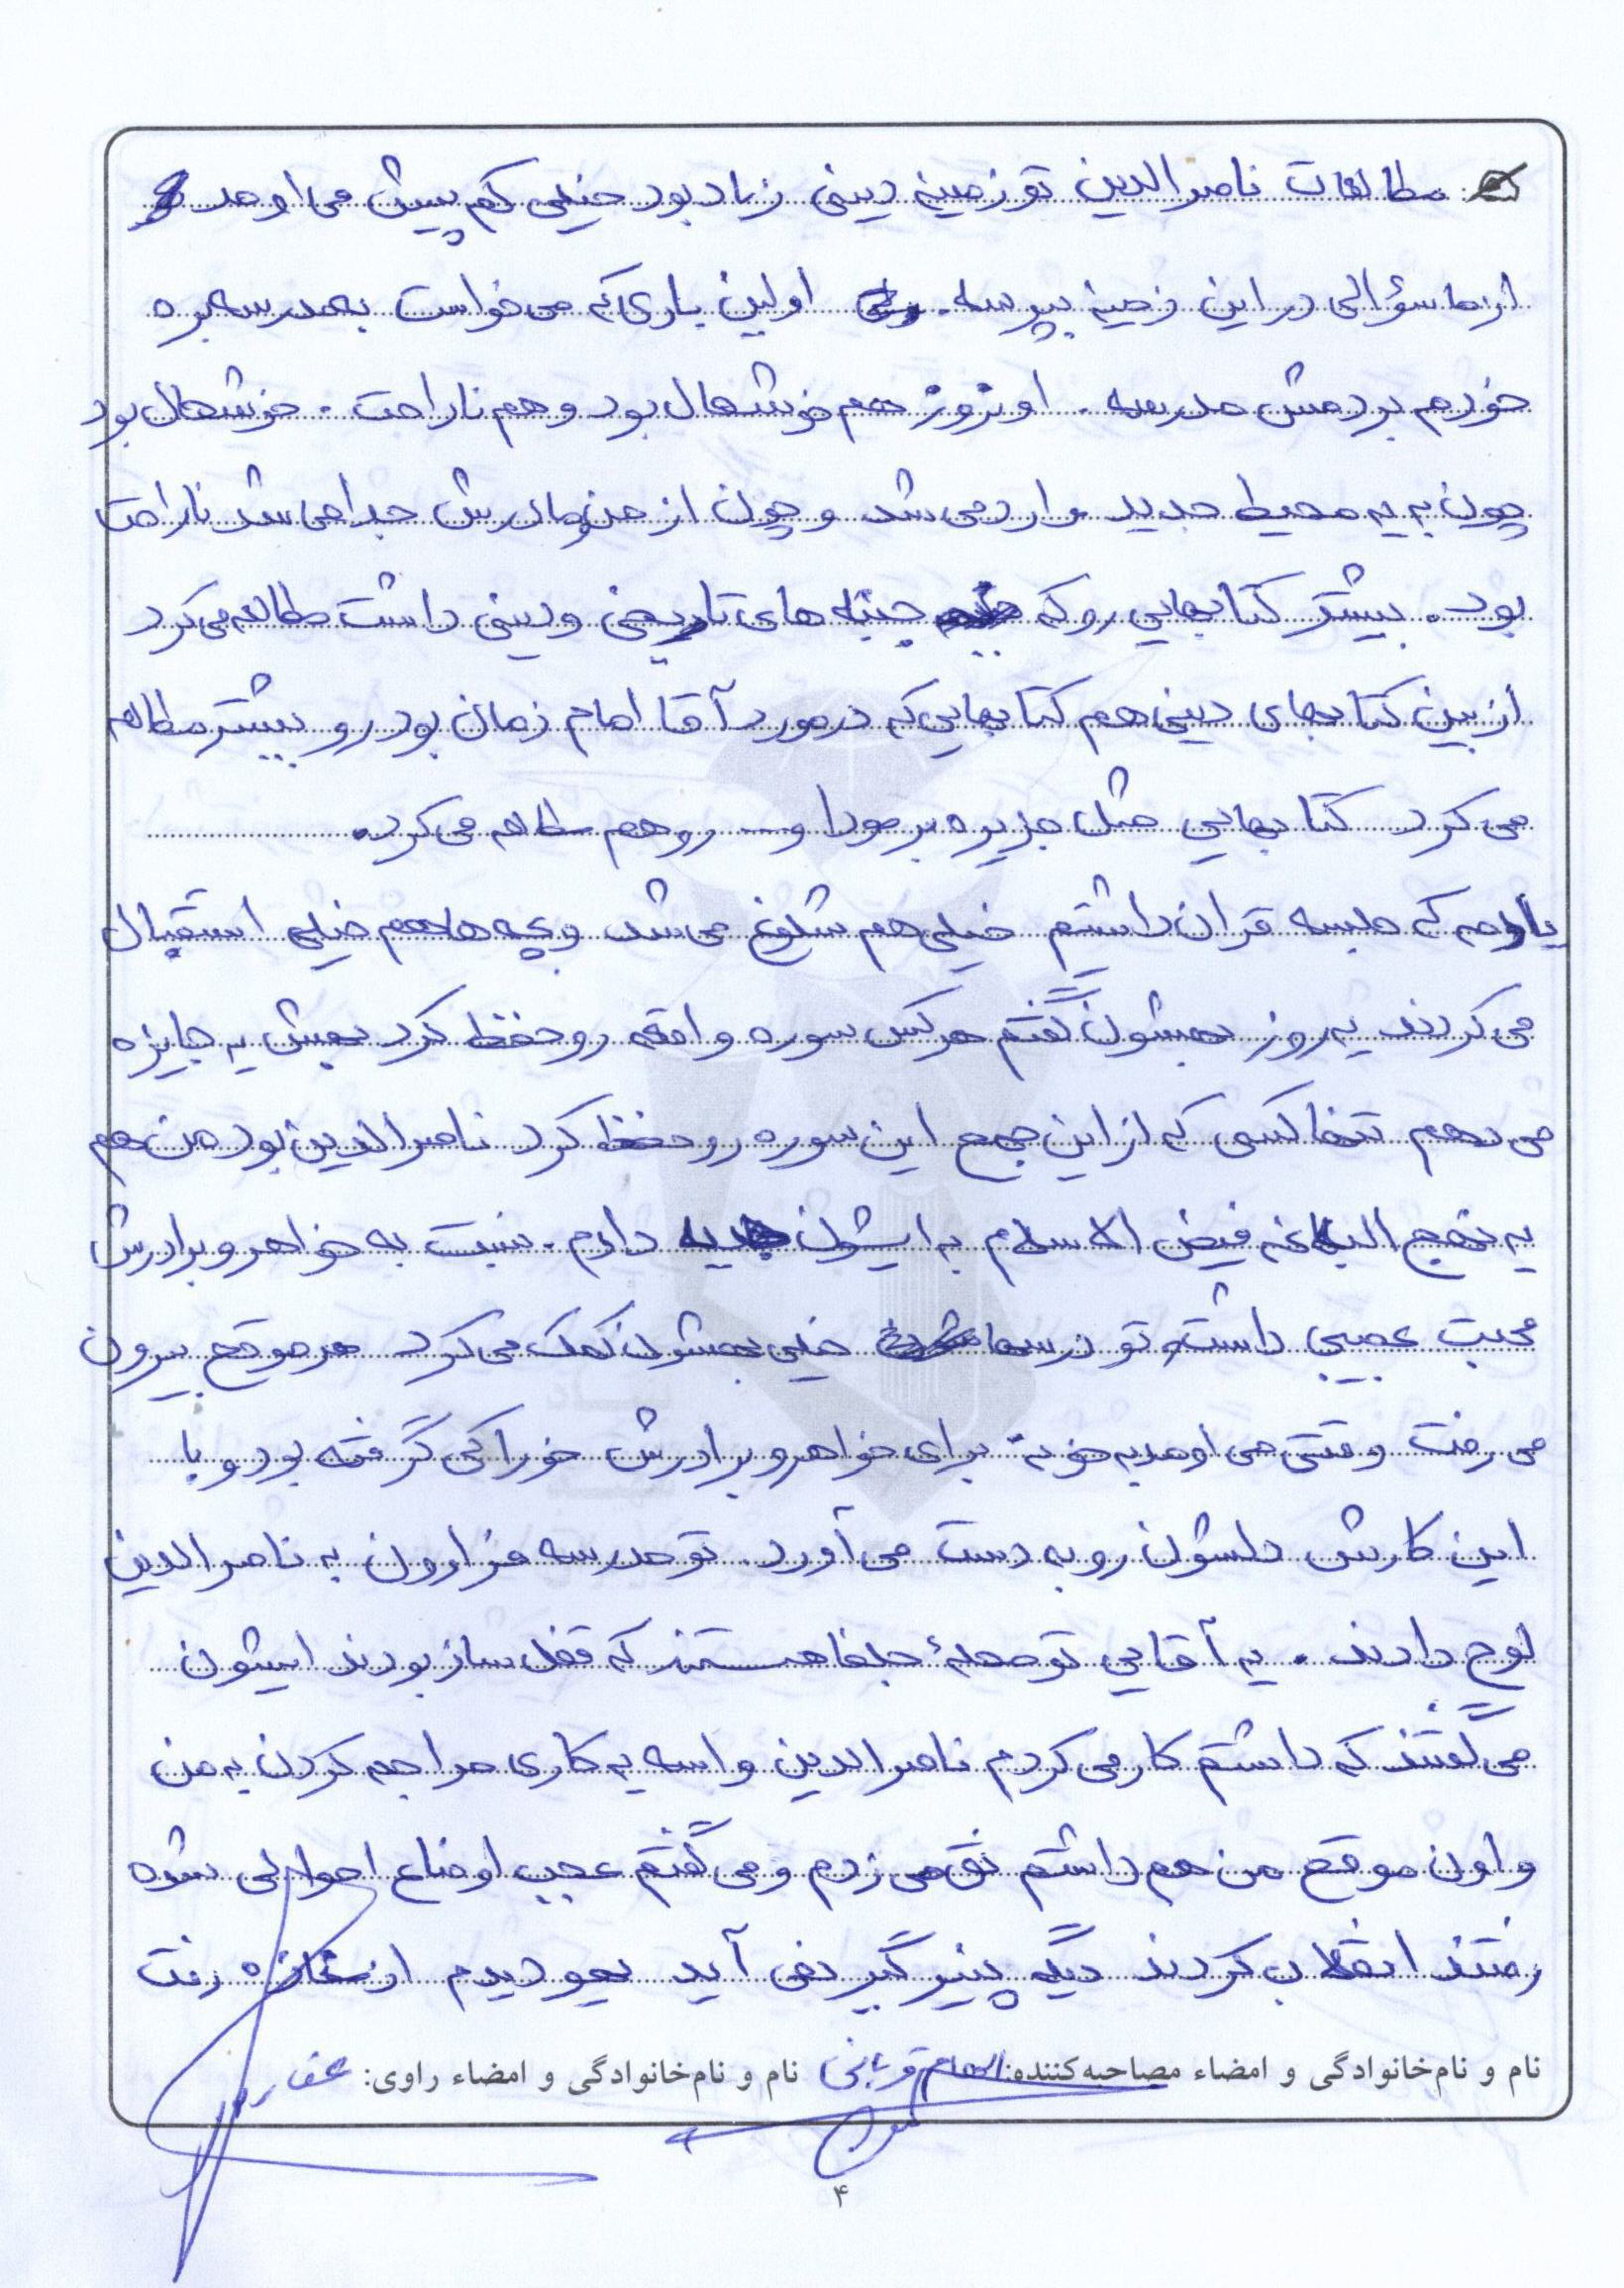 مطالعات ناصرالدین تو زمینه دینی زیاد بود خیلی کم پیش می اومد
از ما سؤالی در این زمینه بپرسه. اولین باری که می خواست به مدرسه بره
خودم بردمش مدرسه. اونروز هم خوشحال بود و هم ناراحت. خوشحال بود
چون به یه محیط جدید وارد می شد و چون از من و مادرش جدا می شد ناراحت
بود. بیشتر کتابهایی رو که جنبه های تاریخی و دینی داشت مطالعه می کرد
از بین کتابهای دینی هم کتابهایی که در مورد آقا امام زمان بود رو بیشتر مطالعه
می کرد کتابهایی مثل جزیره برمودا و .... رو هم مطالعه می کرد.
یادمه که جلسه قران داشتیم خیلی هم شلوغ می شد و بچه ها هم خیلی استقبال
می کردند یه روز بهشون گفتم هر کس سوره واقعه رو حفظ کرد بهش یه جایزه
می دهم تنها کسی که از این جمع این سوره رو حفظ کرد ناصرالدین بود من هم
یه نهج البلاغه فیض الاسلام به ایشون هدیه دادم. نسبت به خواهر و برادرش
محبت عجیبی داشت تو درسها خیلی بهشون کمک می کرد هر موقع بیرون
می رفت وقتی می اومد به خونه برای خواهر و برادرش خوراکی گرفته بود و با
این کارش دلشون رو به دست می آورد. تو مدرسه هزارون به ناصرالدین
لوح دادند. یه آقایی تو محلهٔ جلفا هستند که قفل ساز بودند ایشون
می گفتند که داشتم کار می کردم ناصرالدین واسه یه کاری مراجعه کردن به من
و اون موقع من هم داشتم نق می زدم و می گفتم عجب اوضاع احوالی شده
رفتند انقلاب کردند دیگه پنیر گیر نمی آید یهو دیدم از مغازه رفت
نام و نام‌خانوادگی و امضاء مصاحبه‌کننده: الهام قربانی نام و نام‌خانوادگی و امضاء راوی:
۴